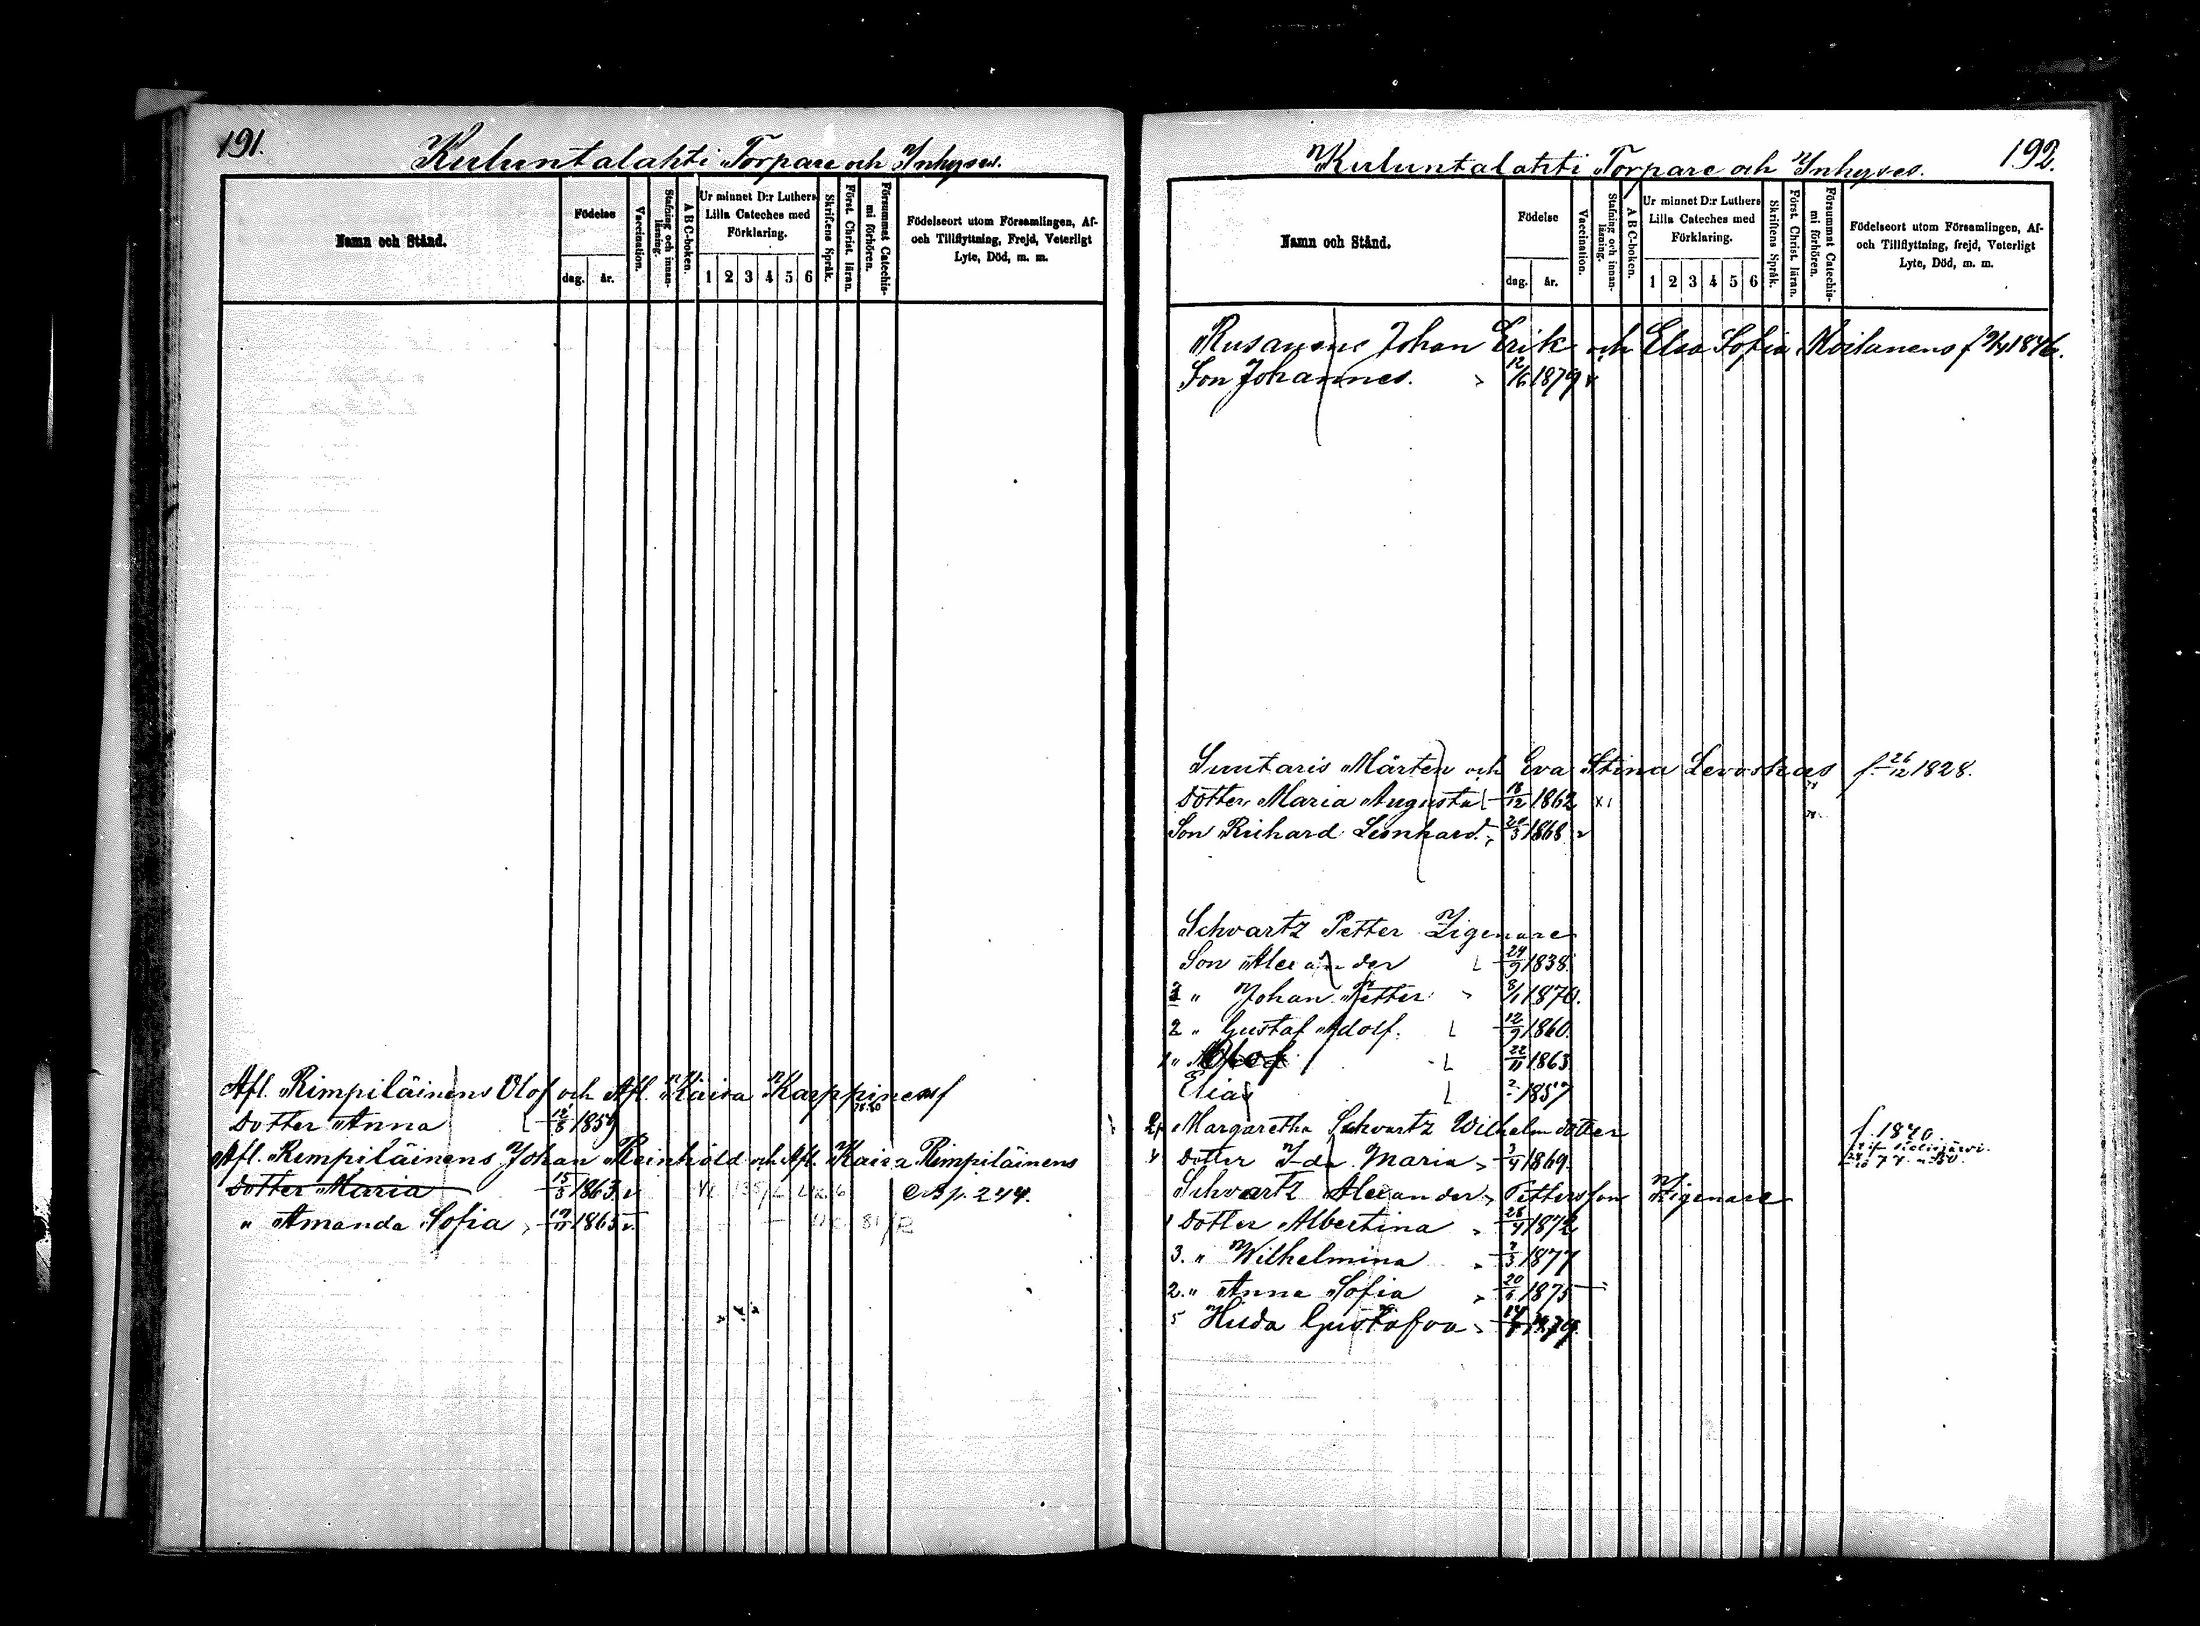 191.
Kuluntalahti Torpare och Inhyses.
Namn och Stånd.
Födelse
dag. år.
Vaccination.
Stafning och innan-läsning.
ABC-boken.
Ur minnet D:r Luthers Lilla Cateches med Förklaring.
1 2 3 4 5 6
Skriftens Språk.
Först. Christ. läran.
Försummat Catechis-mi förhören.
Födelseort utom Församlingen, Af-
och Tillflyttning, Frejd, Veterligt
Lyte, Död, m. m.
Afl. Rimpiläinens Olof och Afl. Kaisa Karppinens
Dotter Anna 12/6 1859
Afl. Rimpiläinens Johan Reinhold och Afl. Kaisa Rimpiläinens
Dotter Maria 15/3 1863 p. 244.
" Amanda Sofia 1865
192.
Kuluntalahti Torpare och Inhyses.
Namn och Stånd.
Födelse
dag. år.
Vaccination.
Stafning och innan-läsning.
ABC-boken.
Ur minnet D:r Luthers Lilla Cateches med Förklaring.
1 2 3 4 5 6
Skriftens Språk.
Först. Christ. läran.
Försummat Catechis-mi förhören.
Födelseort utom Församlingen, Af-
och Tillflyttning, frejd, Veterligt
Lyte, Död, m. m.
Rusanens Johan Erik och Elsa Sofia Moilanens f 1846.
Son Johannes. 12/16 1879
Suutaris Mårten och Eva Stina Levoskas f. 26/12 1828.
Dotter Maria Augusta 18/12 1862
Son Richard Leonhard 20/3 1868
Schvartz Petter Zigenare
Son Alexander 24/9 1838.
3 " Johan Petter 8/1 1870.
2 " Gustaf Adolf. 12/9 1860.
1 " Olof 22/11 1863
Elias 1857
Margaretha Schvartz Wilhelm dotter f. 1840
Dotter Ida Maria 1869.
Schvartz Alexander Pettersson Zigenare
1 Dotter Albertina 28/4 1872
3. " Wilhelmina 1877
2. " Anna Sofia 20/6 1875
5 Hilda Gustafva 1879.